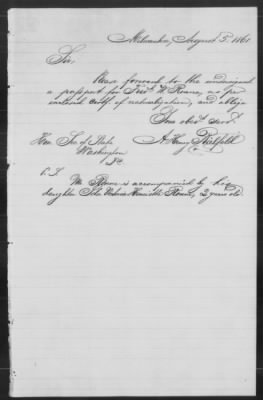 Milwaukee, August 5. 1861
Sir,
Please forward to the undersigned
a passport for Fred. W. , as per
inclosed certf. of naturalization, and oblige
Your obedt. servt.
Henry
Hon. Sec of State
Washington
DC.
P.S.
Mr is accompanied by his
daughter Henriette , 2 years old.